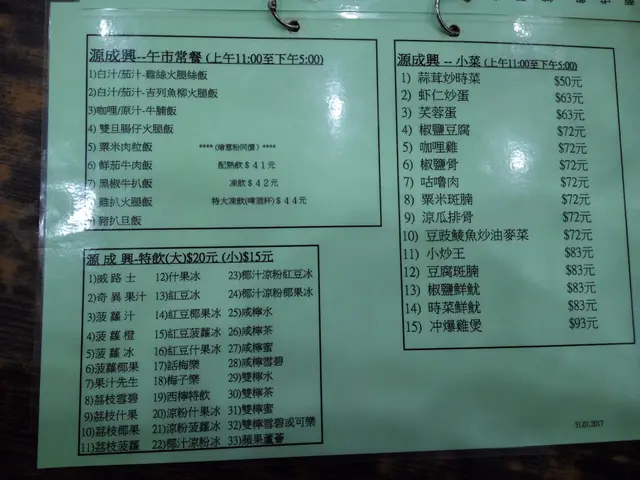 源成興--午市常餐 (上午11:00至下午5:00)
1)白汁/茄汁-雞絲火腿絲飯
2)白汁/茄汁-吉列魚柳火腿飯
3)咖哩/原汁-牛腩飯
4) 雙旦腸仔火腿飯
5) 粟米肉粒飯 ****(燴意粉同價) ****
6) 鮮茄牛肉飯 配熱飲 $ 4 1 元
7) 黑椒牛扒飯 凍飲 $ 4 2 元
雞扒火腿飯 特大凍飲(啤酒杯) $ 4 4 元
豬扒旦飯
源 成 興-特飲(大)$20元 (小)$15元
1)威 路 士 12)什果冰 23)椰汁涼粉紅豆冰
2)奇 異 果汁 13)紅豆冰 24)椰汁涼粉椰果冰
3)菠 蘿 汁 14)紅豆椰果冰 25)咸檸水
4)菠 蘿 橙 15)紅豆菠蘿冰 26)咸檸茶
5)菠 蘿 冰 16)紅豆什果冰 27)咸檸蜜
6)菠蘿椰果 17)話梅樂 28)咸檸雪碧
7)果汁先生 18)梅子樂 29)雙檸水
8)荔枝雪碧 19)西檸特飲 30)雙檸茶
9)荔枝什果 20)涼粉什果冰 31)雙檸蜜
10)荔枝椰果 21)涼粉菠蘿冰 32)雙檸雪碧或可樂
11)荔枝菠蘿 22)椰汁涼粉冰 33)蘋果蘆薈
源成興 -- 小菜 (上午11:00至下午5:00)
1) 蒜茸炒時菜 $50元
2) 虾仁炒蛋 $63元
3) 芙蓉蛋 $63元
4) 椒鹽豆腐 $72元
5) 咖哩雞 $72元
6) 椒鹽骨 $72元
7) 咕嚕肉 $72元
8) 粟米斑腩 $72元
9) 涼瓜排骨 $72元
10) 豆豉鯪魚炒油麥菜 $72元
11) 小炒王 $83元
12) 豆腐斑腩 $83元
13) 椒鹽鮮魷 $83元
14) 時菜鮮魷 $83元
15) 冲爆雞煲 $93元
31.01.2017